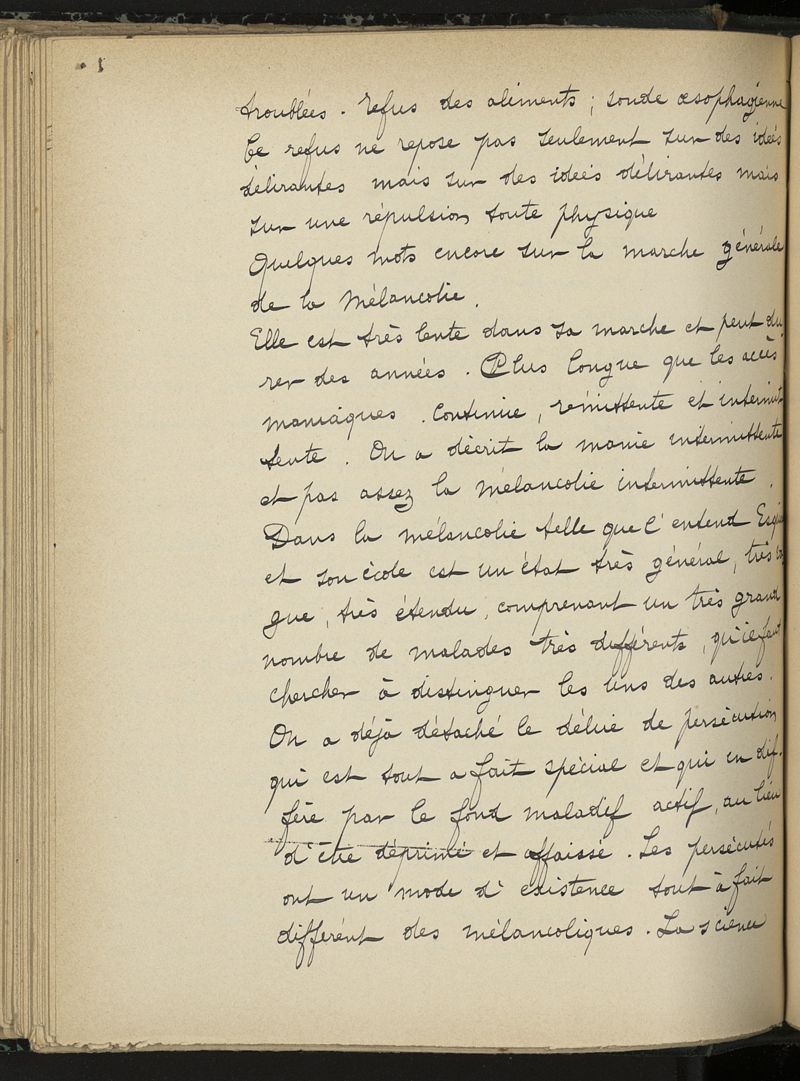 troublées. refus des aliments; sonde œsophagienne
Ce refus ne repose pas seulement sur des idées
délirantes mais sur des idées délirantes mais
sur une répulsion toute physique
Quelques mots encore sur la marche générale
de la Mélancolie.
Elle est très lente dans sa marche et peut du
rer des années. Plus longue que les accès
maniaques. Continue, rémittente et intermit
tente. On a décrit la manie intermittente
et pas assez la mélancolie intermittente.
Dans la mélancolie telle que l'entend
et son école est un état très général, très
gue, très étendu, comprenant un très grand
nombre de malades très différents, qu'il faut
chercher à distinguer les uns des autres.
On a déjà détaché le délire de persécution
qui est tout a fait spécial et qui en dif.
fère par le fond maladif actif, au lieu
d'être déprimé et affaissé. Les persécutés
ont un mode d'existence tout à fait
différent des mélancoliques. La science